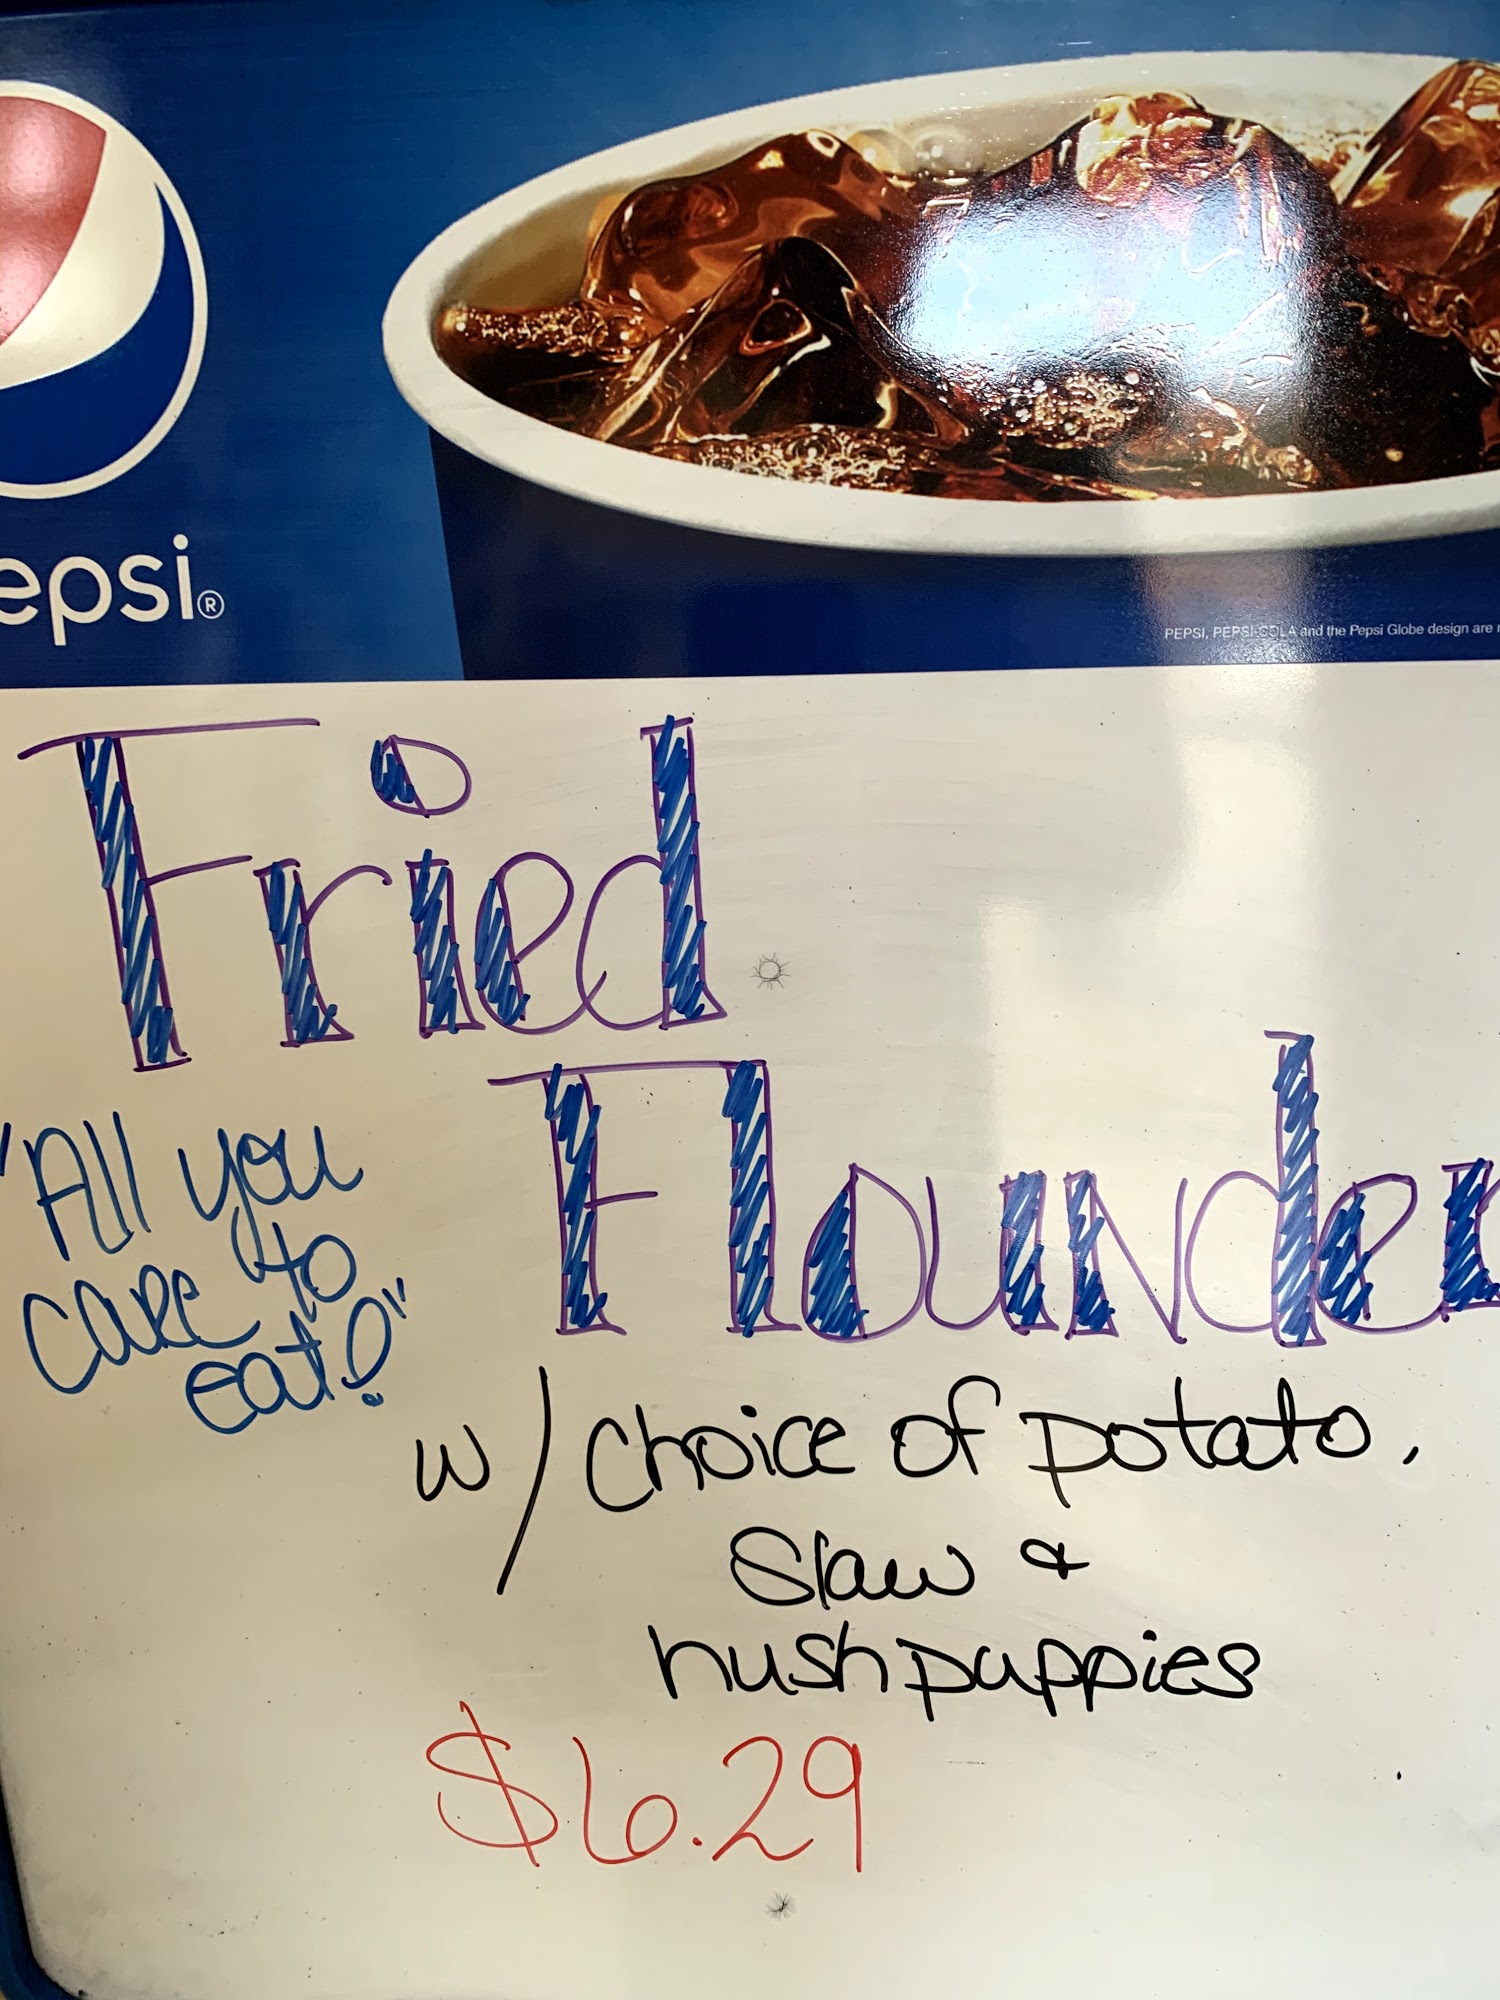 epsi®
PEPSI, PEPSI-COLA and the Pepsi Globe design are
Fried
Flounder
"All you
care to
eat!"
w/ choice of potato,
Slaw &
hushpuppies
$6.29